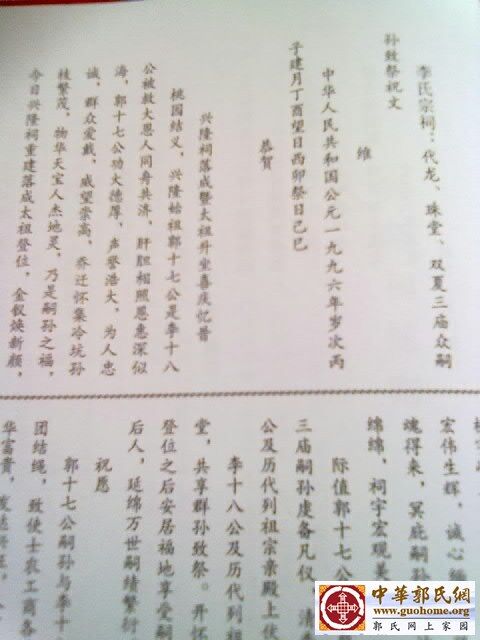 李氏宗祠：代龙、珠堂、双夏三庙众嗣
补致祭祝文
维
中华人民共和国公元一九九六年岁次丙
子建月丁酉望日西卯祭日己巳
恭贺
兴隆祠落成暨太祖升堂喜庆忆昔
桃园结义，兴隆始祖郭十七公是李十八
公被救大恩人同舟共济，肝胆相照恩惠深似
海，郭十七公功大德厚，声誉浩大，为人忠
诚，群众爱戴，威望崇高，乔迁怀集冷坑孙
枝繁茂，物华天宝人杰地灵，乃是嗣孙之福，
今日兴隆祠重建落成太祖登位，金钗焕新颜，
宏伟生辉，诚心
魂得来，冥庇嗣孙
绵绵，祠宇宏观美
际值郭十七公
三庙嗣孙虔备凡仪，清
公及历代列祖宗亲殿上伏
李十八公及历代列祖
堂，共享群孙致祭。开怀
登位之后安居福地享受嗣
后人，延绵万世嗣绪繁
祝愿
郭十七公嗣孙与李十
团结绳，致使士农工商各
华富贵，
中華郭氏網
www.guohome.org
郭氏网上家园